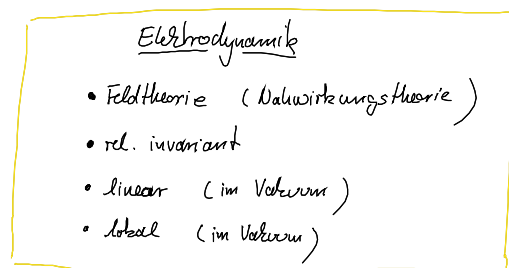 Elektrodynamik
• Feldtheorie (Nahwirkungstheorie)
• rel. invariant
• linear (im Vakuum)
• lokal (im Vakuum)